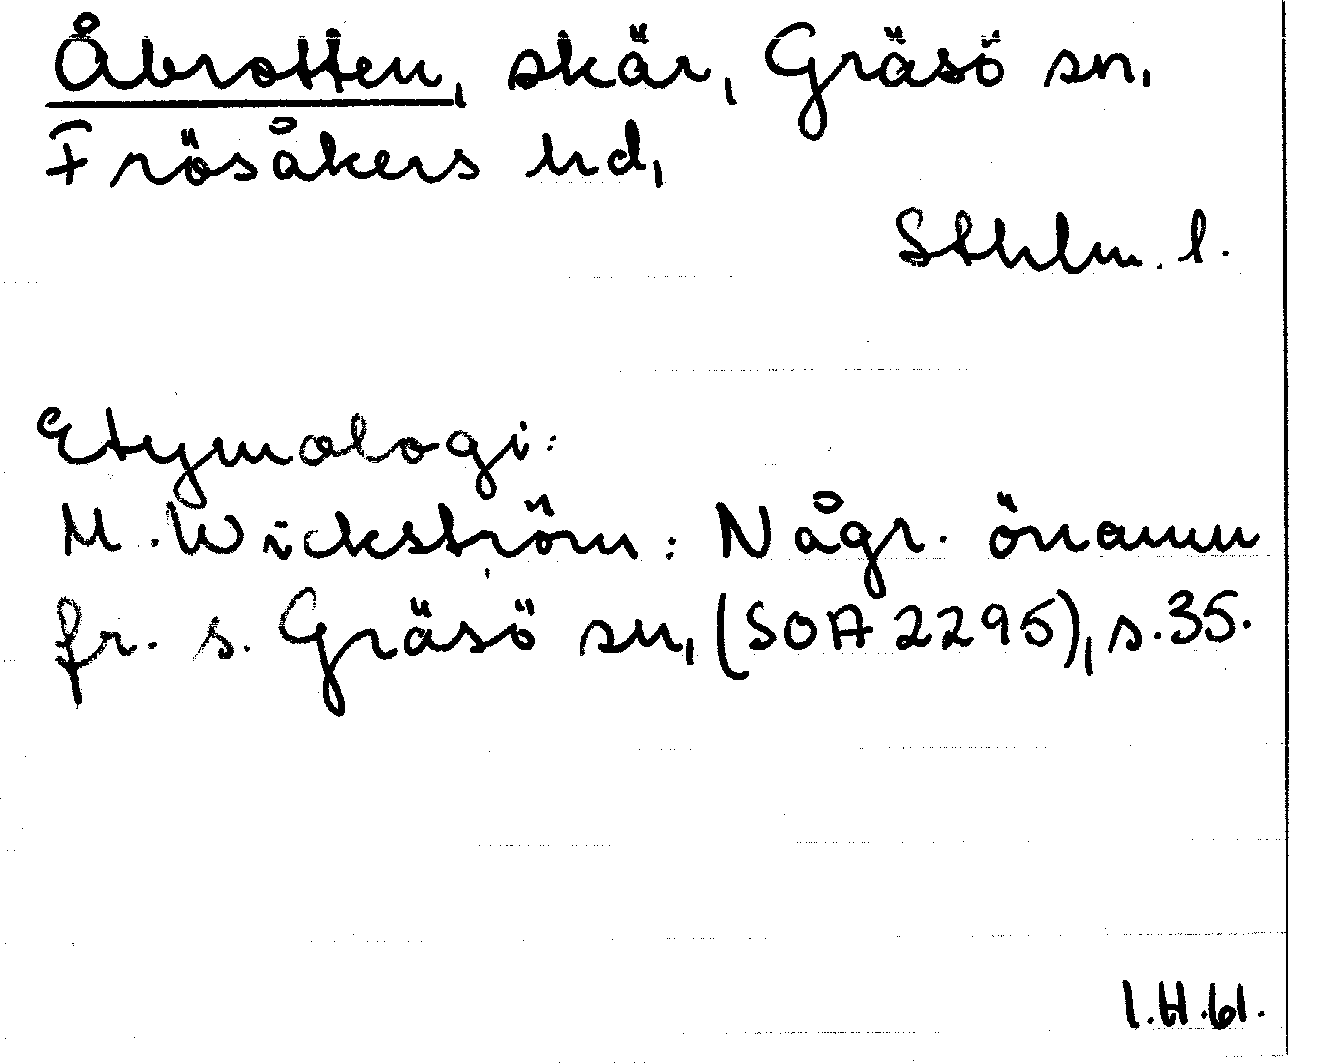 Åbrotten, skär, Gräsö sn,
Frösåkers hd,
Sthlm. l.
Etymologi:
M. Wickström: Någr. önamn
fr. s. Gräsö sn, (SOA 2295), s. 35.
I.H.61.